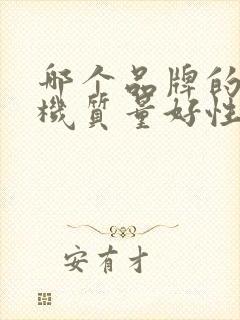 哪个品牌的
機質量好性
安有才